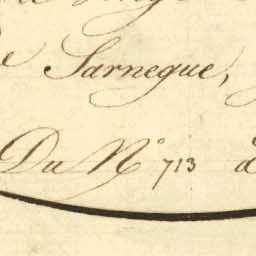 de Sarnegue,
Du N.º 713 à